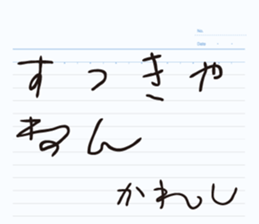 No.
Date
すっきゃ
ねん
かれし